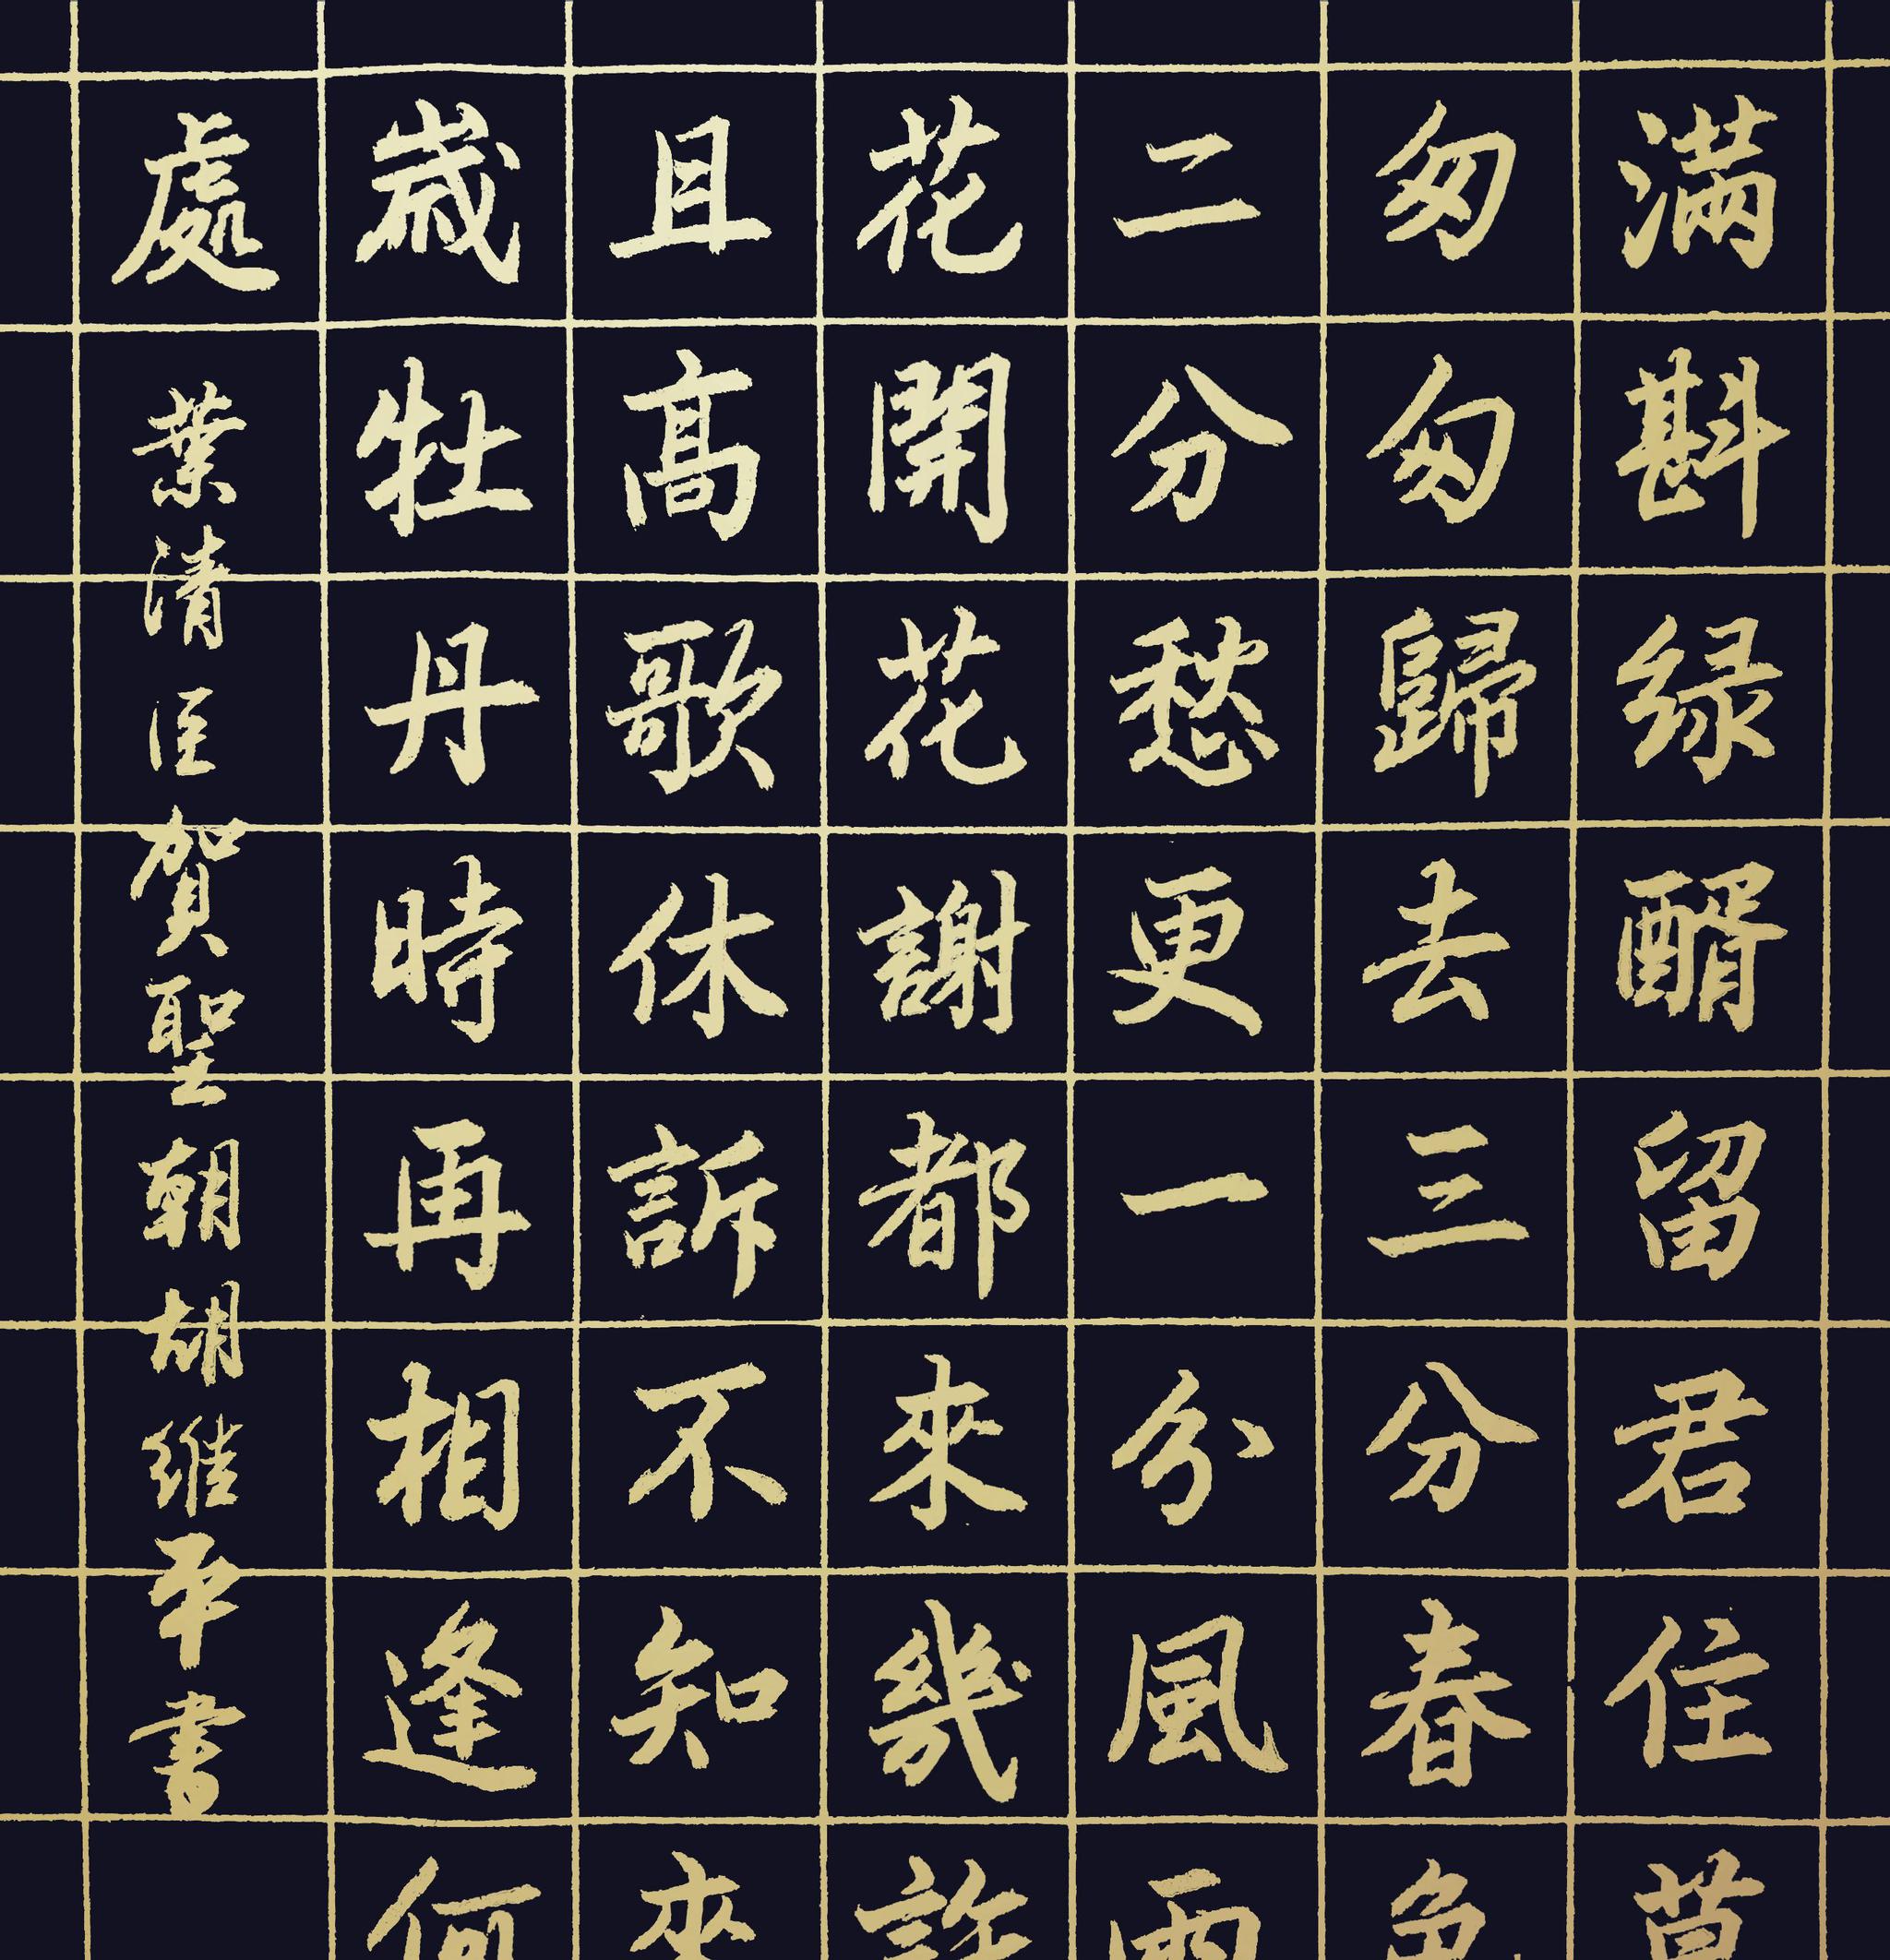 滿斟緑醑留君住莫
匆匆歸去三分春色
二分愁更一分風雨
花開花謝都來幾許
且高歌休訴不知來
嵗牡丹時再相逢何
處
葉清臣賀聖朝胡維平書